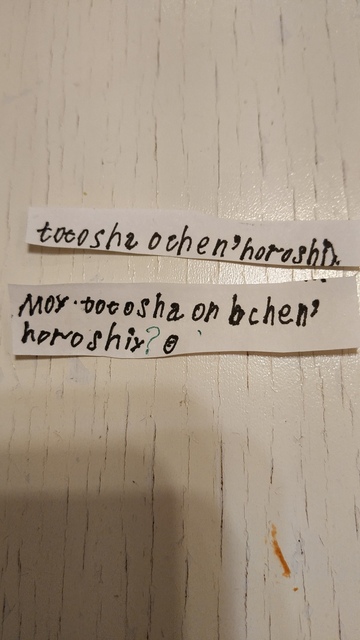 totosha ochen'horoshiy
moy totosha on ochen'
horoshiy?